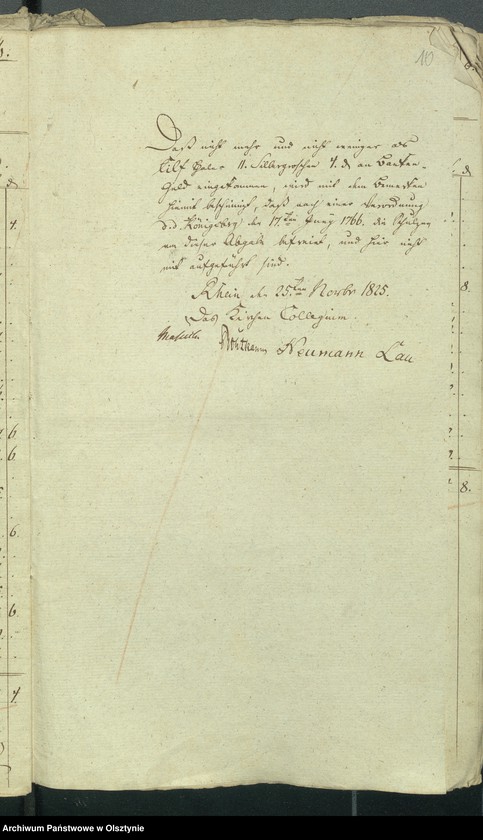 10
Daß nicht mehr und nicht weniger als
Eilf Thaler 11. Silbergroschen 4. d. an Banken-
Geld eingekommen, wird mit dem Bemerken
hiemit bescheinigt, daß nach einer Verordnung
d.d. Königsberg den 17.ten 1766. die Schulzen
von dieser Abgabe befreiet, und hier nicht
mit aufgeführt sind.
Rhein den 25.ten Novbr 1825.
Das Kirchen Collegium.
Neumann Lau
4.
6
6
6.
6
4.
d
8.
8.
Archiwum Państwowe w Olsztynie